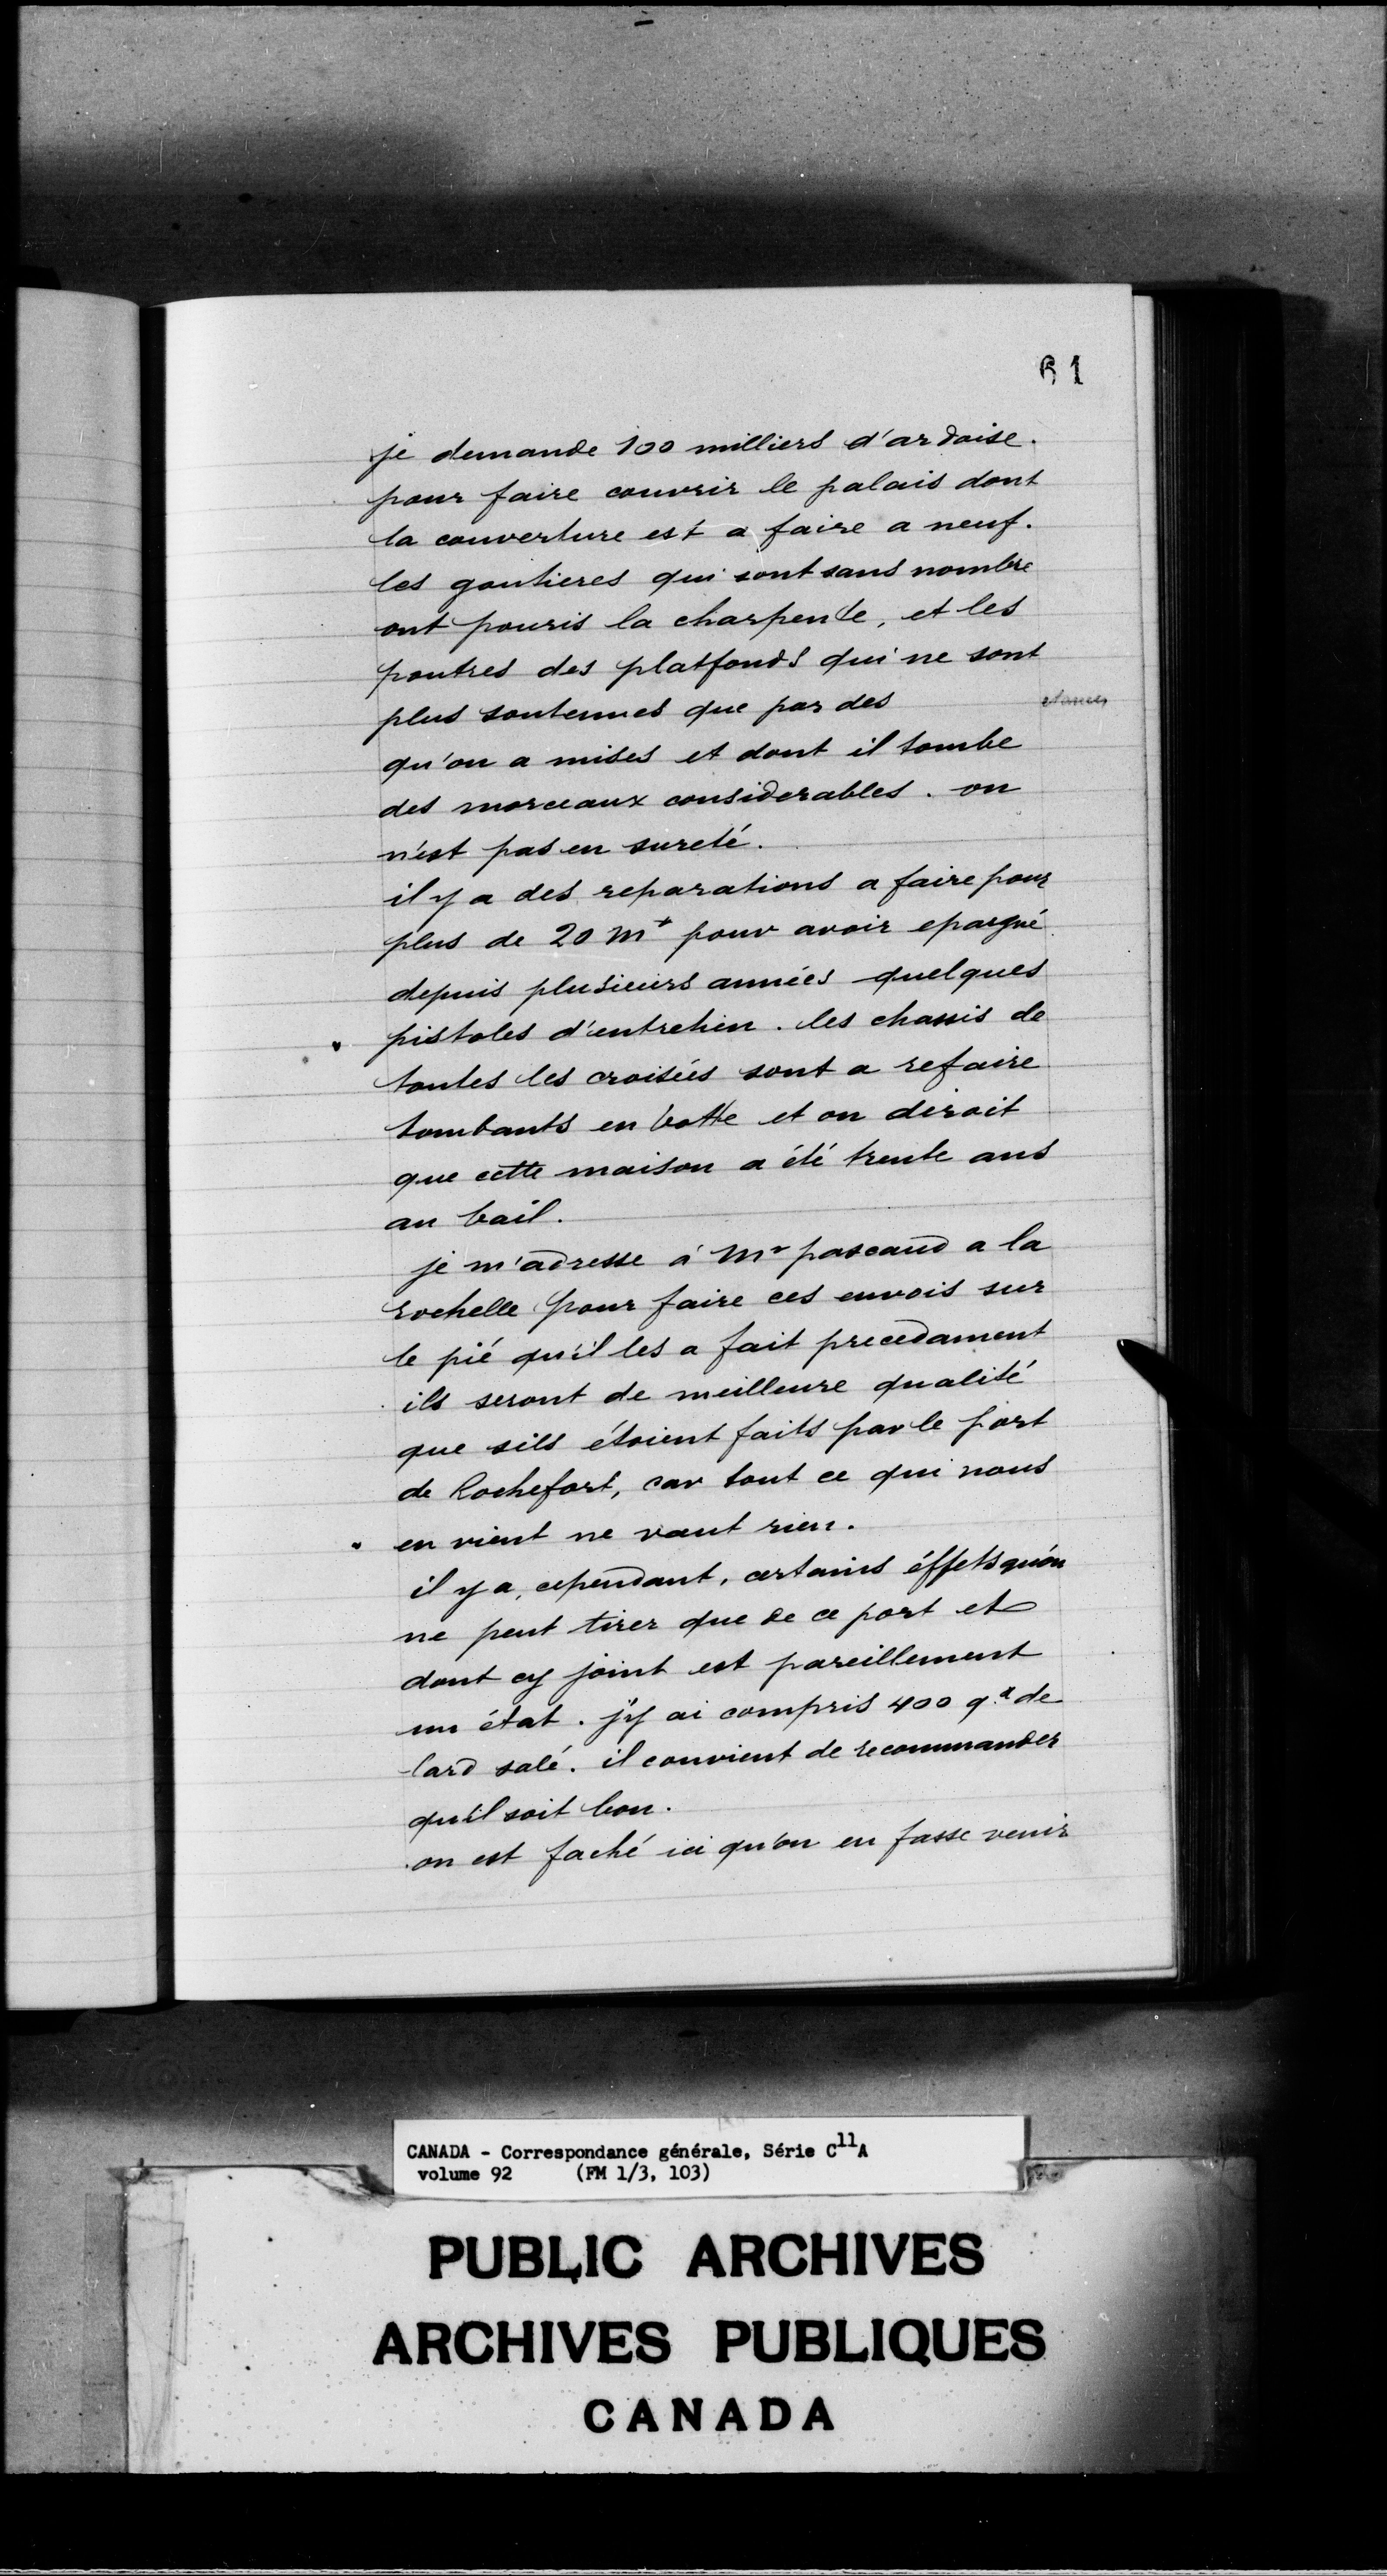 61
je demande 100 milliers d'ardoise.
pour faire couvrir le palais dont
la couverture est a faire a neuf.
les goutieres qui sont sans nombre
ont pouris la charpente, et les
poutres des platfonds qui ne sont
plus soutenues que par des
qu'on a mises et dont il tombe
des morceaux considerables. on
n'est pas en sureté.
il y a des reparations a faire pour
plus de 20 m# pour avoir epargné
depuis plusieurs années quelques
pistoles d'entretien. les chassis de
toutes les croisées sont a refaire
tombants en botte et on diroit
que cette maison a été trente ans
au bail.
je m'adresse à Mr pascaud a la
rochelle pour faire ces envois sur
le pié qu'il les a fait precedament
ils seront de meilleure qualité
que sils étoient faits par le port
de Rochefort, car tout ce qui nous
en vient ne vaut rien.
il y a, cependant, certains éffets qu'on
ne peut tirer que de ce port et
dont cy joint est pareillement
un état. j'y ai compris 400 q.x de
lard salé. il convient de recommander
qu'il soit bon.
on est faché ici qu'on en fasse venir
CANADA - Correspondance générale, Série C11A
volume 92 (FM 1/3, 103)
PUBLIC ARCHIVES
ARCHIVES PUBLIQUES
CANADA